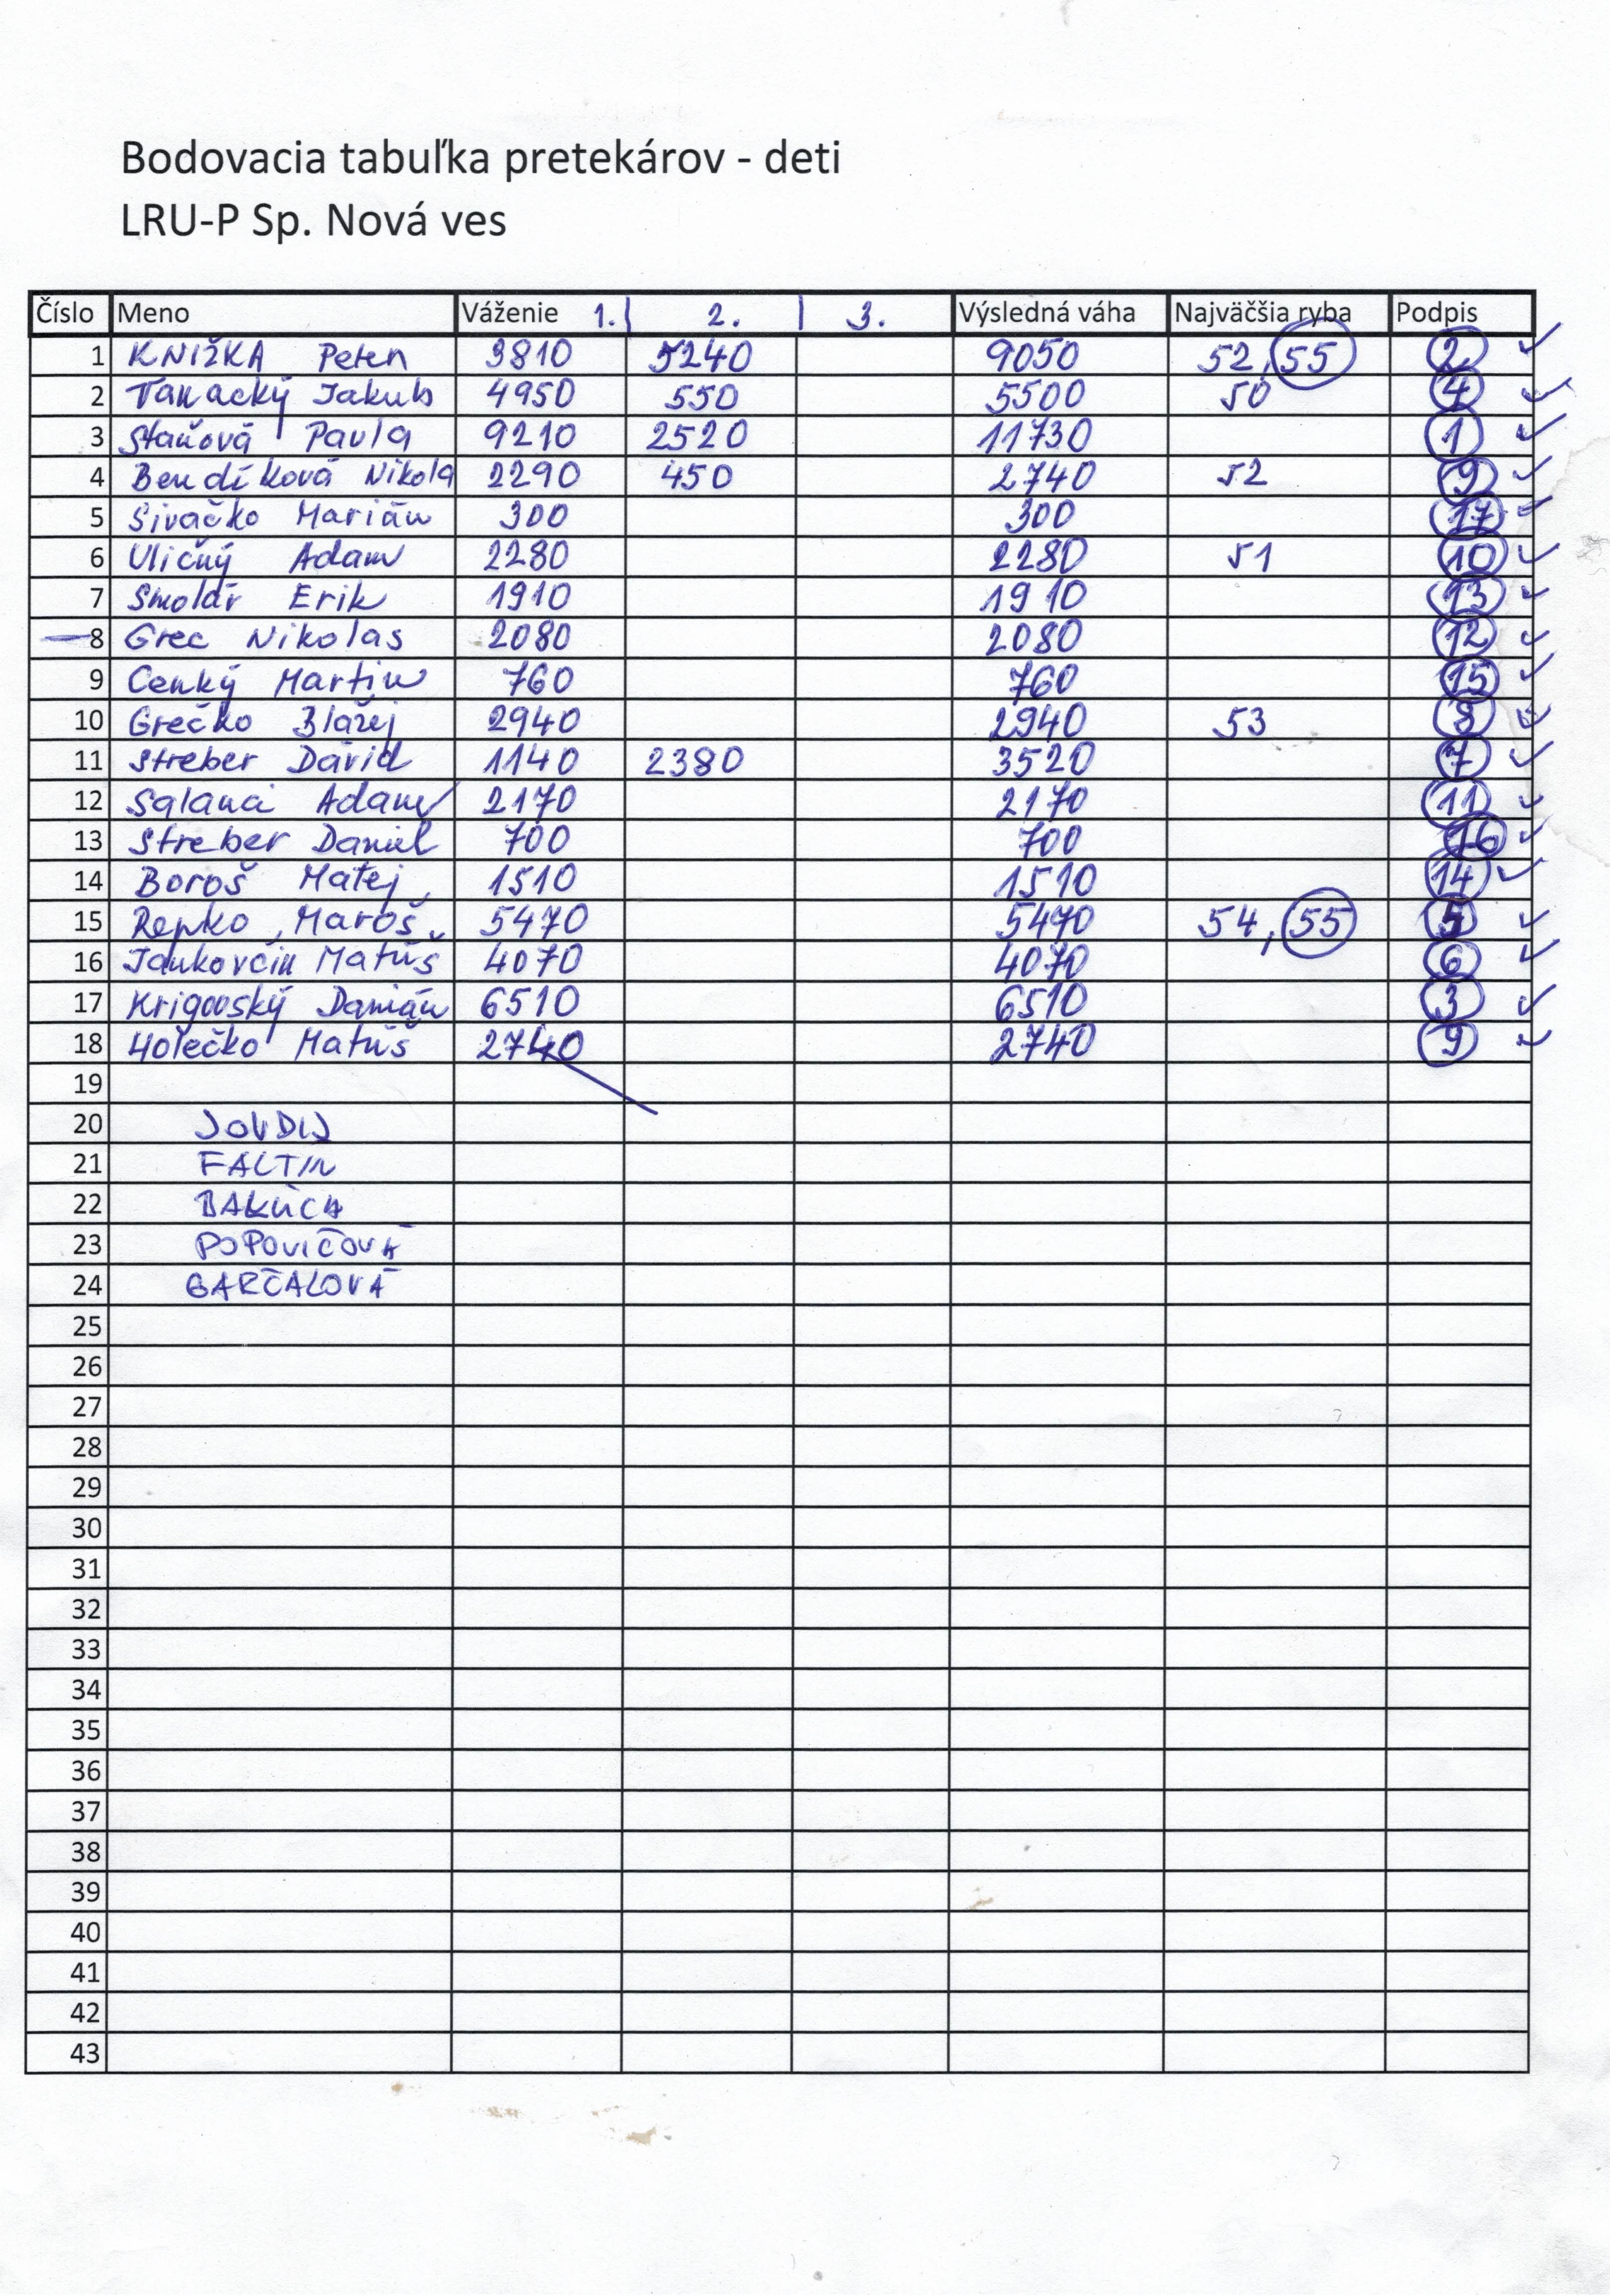 Bodovacia tabuľka pretekárov - deti
LRU-P Sp. Nová ves
Číslo Meno Váženie 1. 2. 3. Výsledná váha Najväčšia ryba Podpis
1 KNIŽKA Peter 3810 5240 9050 52, 55 2
2 Jakub 4950 550 5500 50 4
3 Staňová Pavla 9210 2520 11730 1
4 Bendíková Nikola 2290 450 2740 52 9
5 Sivačko Marián 300 300 17
6 Uličný Adam 2280 2280 51 10
7 Smolár Erik 1910 1910 13
8 Grec Nikolas 2080 2080 12
9 Cenký Martin 760 760 15
10 Grečko Blažej 2940 2940 53 8
11 Streber Dávid 1140 2380 3520 7
12 Salanci Adam 2170 2170 11
13 Streber Daniel 700 700 16
14 Boroš Matej 1510 1510 14
15 Repko Maroš 5470 5470 54, 55 5
16 Jankovčin Matúš 4070 4070 6
17 Krigovský Damián 6510 6510 3
18 Holečko Matúš 2740 2740 9
19
20
21 FALTIN
22
23 POPOVIČOVÁ
24 GARČALOVÁ
25
26
27
28
29
30
31
32
33
34
35
36
37
38
39
40
41
42
43